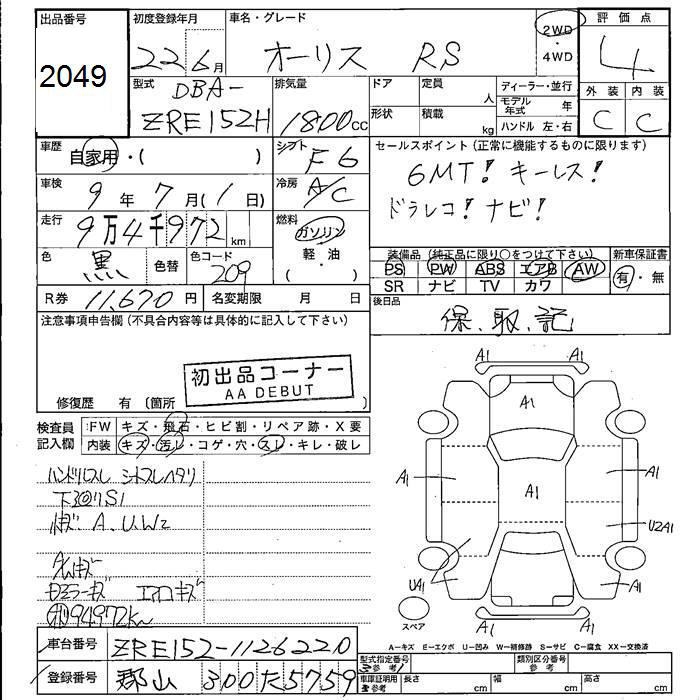 出品番号
2049
初度登録年月
22 6月
車名・グレード
オーリス RS
2WD
・
4WD
評価点
4
型式
DBA-
ZRE152H
排気量
1800cc
ドア
定員
人
ディーラー・並行
モデル年式 年
形状
積載
kg
ハンドル 左・右
外装
内装
C
C
車歴
自家用・( )
シフト
F6
セールスポイント(正常に機能するものに限ります)
6MT! キーレス!
ドラレコ! ナビ!
車検
9年7月(1日)
冷房
A/C
走行
9万4千972km
燃料
ガソリン
・
軽・油
( )
色
黒
色替
色コード
209
装備品(純正品に限り○をつけて下さい)
PS PW ABS エアB AW
SR ナビ TV カワ
新車保証書
有・無
R券 11,670円
名変期限 月 日
後日品
保、取、記
注意事項申告欄(不具合内容等は具体的に記入して下さい)
初出品コーナー
AA DEBUT
修復歴 有(箇所 )
検査員記入欄
FW キズ・飛石・ヒビ割・リペア跡・X要
内装 キズ・汚レ・コゲ・穴・スレ・キレ・破レ
ハンドルスレ シートスレヘタリ
A、U、W2
94972km
A1
A1
A1
A1
A1
A1
A1
U2A1
UA1
A1
A1
スペア
A=キズ E=エクボ U=凹み W=補修跡 S=サビ C=腐食 XX=交換済
車台番号 ZRE152-1126220
登録番号 郡山 300 た 5759
型式指定番号
参考
類別区分番号
参考
車庫証明用
参考
長さ cm
幅 cm
高さ cm